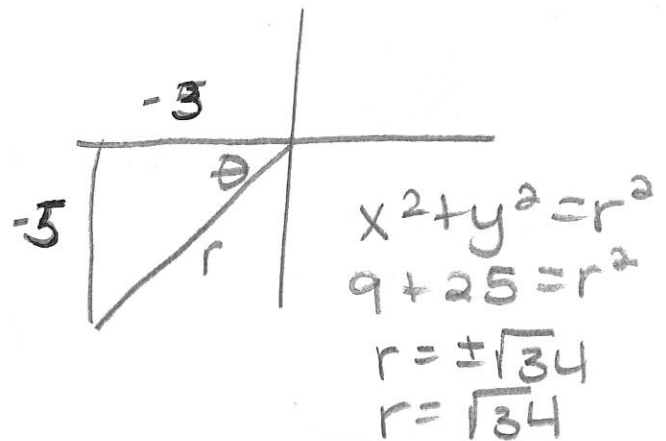 -3
θ
-5
r
x²+y²=r²
9+25=r²
r=±√34
r=√34